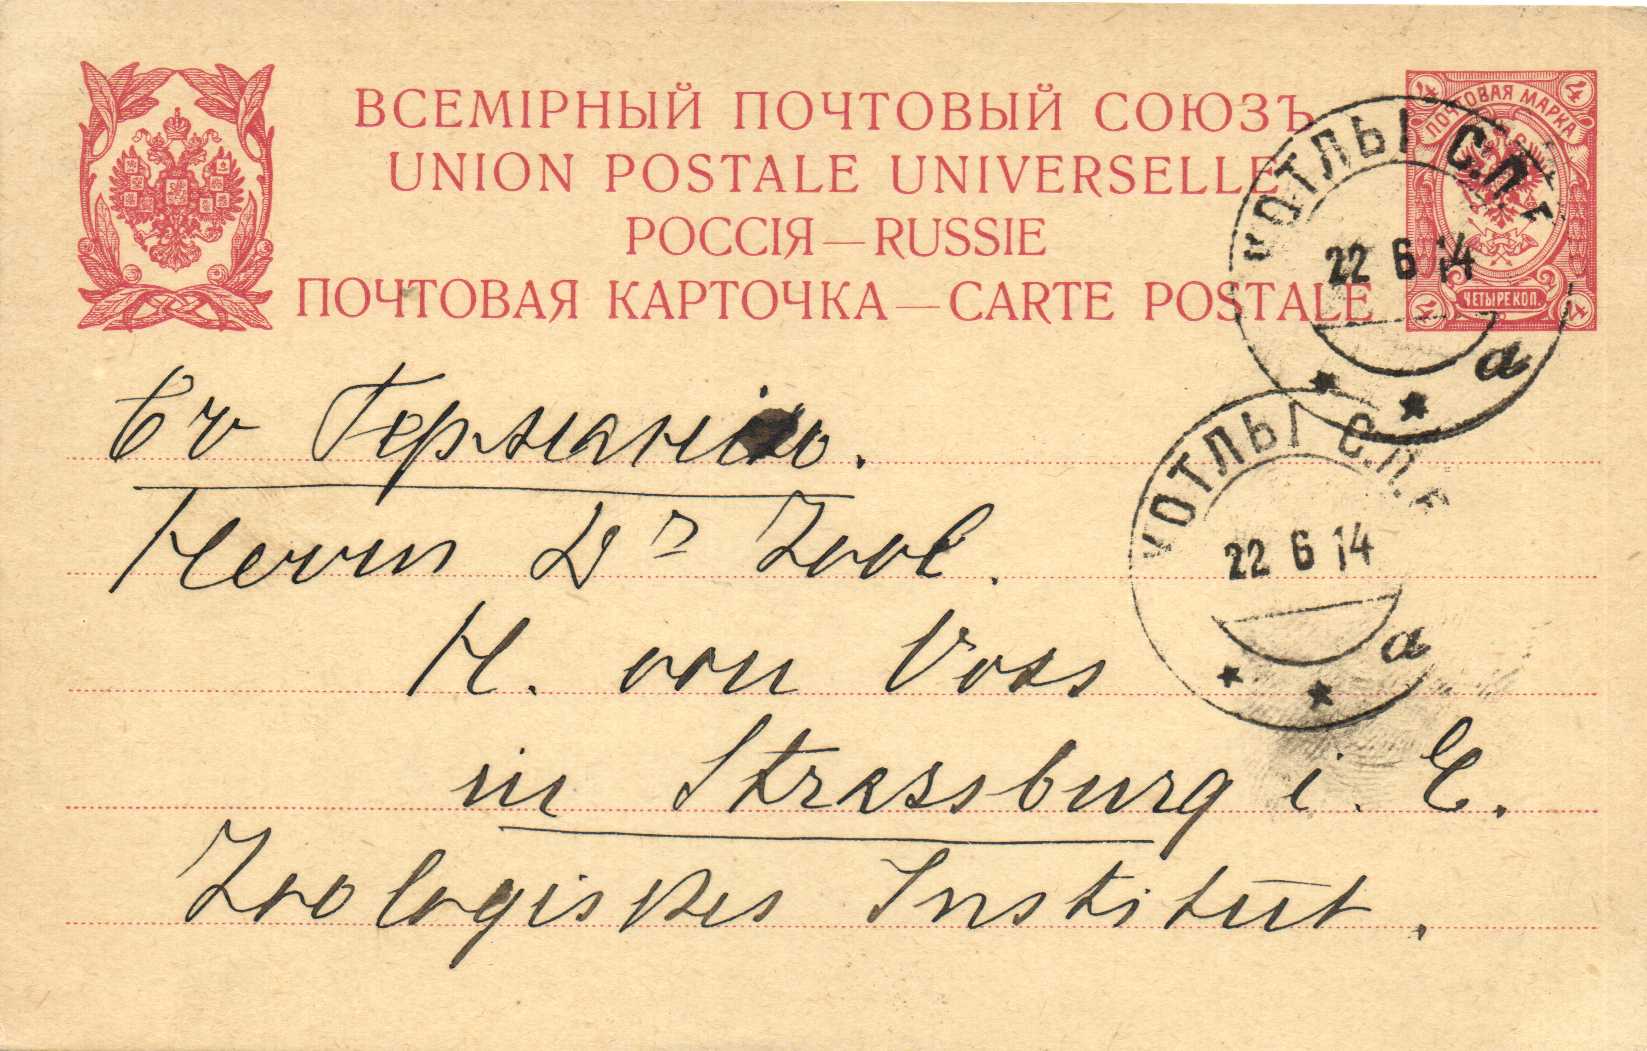 ВСЕМІРНЫЙ ПОЧТОВЫЙ СОЮЗЪ
UNION POSTALE UNIVERSELLE
РОССІЯ — RUSSIE
ПОЧТОВАЯ КАРТОЧКА — CARTE POSTALE
ПОЧТОВАЯ МАРКА
4 4
ЧЕТЫРЕ КОП.
4 4
КОТЛЫ С.П.Б
22 6 14
а
КОТЛЫ С.П.Б
22 6 14
а
Въ Германію.
Herrn Dr Zool.
H. von Voss
in Strassburg i. E.
Zoologisches Institut.